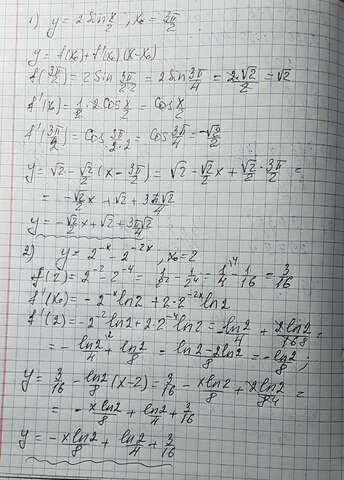 1) y = 2 sin x/2, x₀ = 3π/2
y = f(x₀) + f'(x₀)(x-x₀)
f(3π/2) = 2 Sin 3π/2·2 = 2 sin 3π/4 = 2·√2/2 = √2
f'(x₀) = 1/2 · 2 Cos x/2 = Cos x/2
f'(3π/2) = Cos 3π/2·2 = Cos 3π/4 = -√2/2
y = √2 - √2/2 (x - 3π/2) = √2 - √2/2 x + √2/2 · 3π/2 =
= -√2/2 x + √2 + 3π√2/4
y = -√2/2 x + √2 + 3π√2/4
2) y = 2^-x - 2^-2x, x₀ = 2
f(2) = 2^-2 - 2^-4 = 1/2² - 1/2⁴ = 1/4 - 1/16 = 3/16
f'(x₀) = -2^-x ln2 + 2·2^-2x ln2
f'(2) = -2^-2 ln2 + 2·2^-4 ln2 = -ln2/4 + 2ln2/16 8 =
= -ln2/4 + ln2/8 = ln2-2ln2/8 = -ln2/8;
y = 3/16 - ln2/8 (x-2) = 3/16 - xln2/8 + 2ln2/8 4 =
= -xln2/8 + ln2/4 + 3/16
y = -xln2/8 + ln2/4 + 3/16